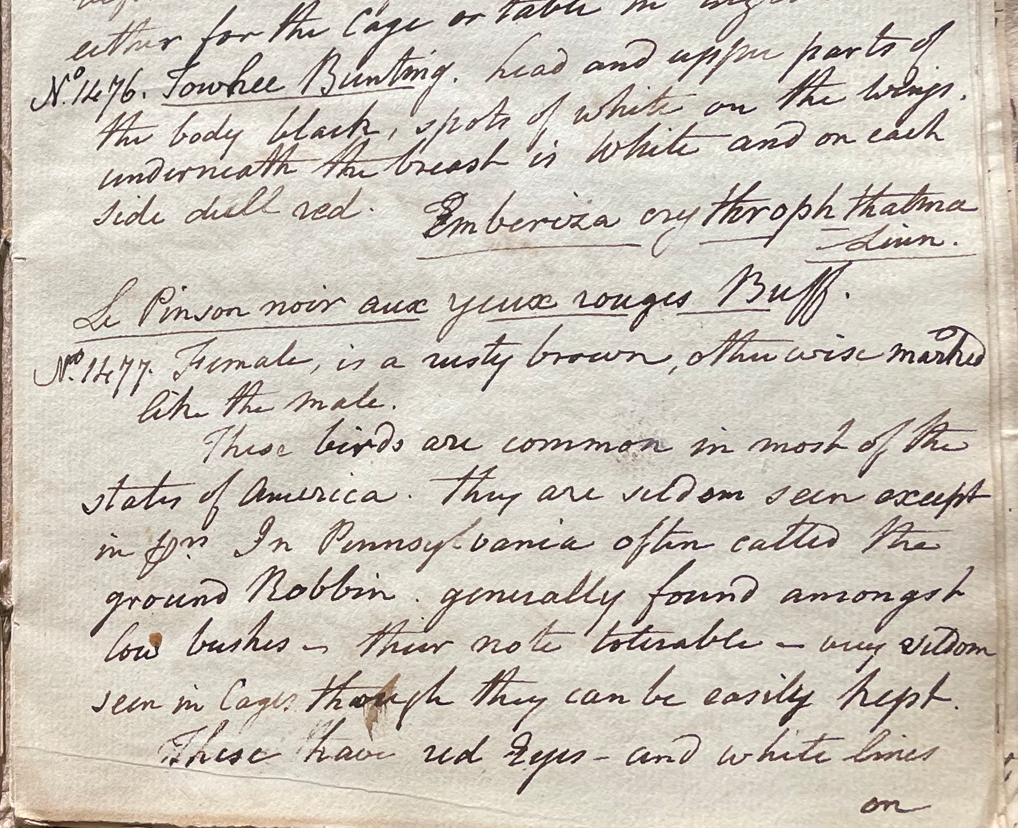 either for the Cage or table in
No. 1476. Towhee Bunting. head and upper parts of
the body black, spots of white on the wings.
underneath the breast is white and on each
side dull red.
Emberiza erythrophthalma
Linn.
Le Pinson noir aux yeux rouges Buff.
No. 1477. Female, is a rusty brown, otherwise marked
like the male.
These birds are common in most of the
states of America. they are seldom seen except
in prs In Pennsylvania often called the
ground Robbin. generally found amongst
low bushes - their note tolerable - very seldom
seen in Cages though they can be easily kept.
These have red Eyes - and white lines
on